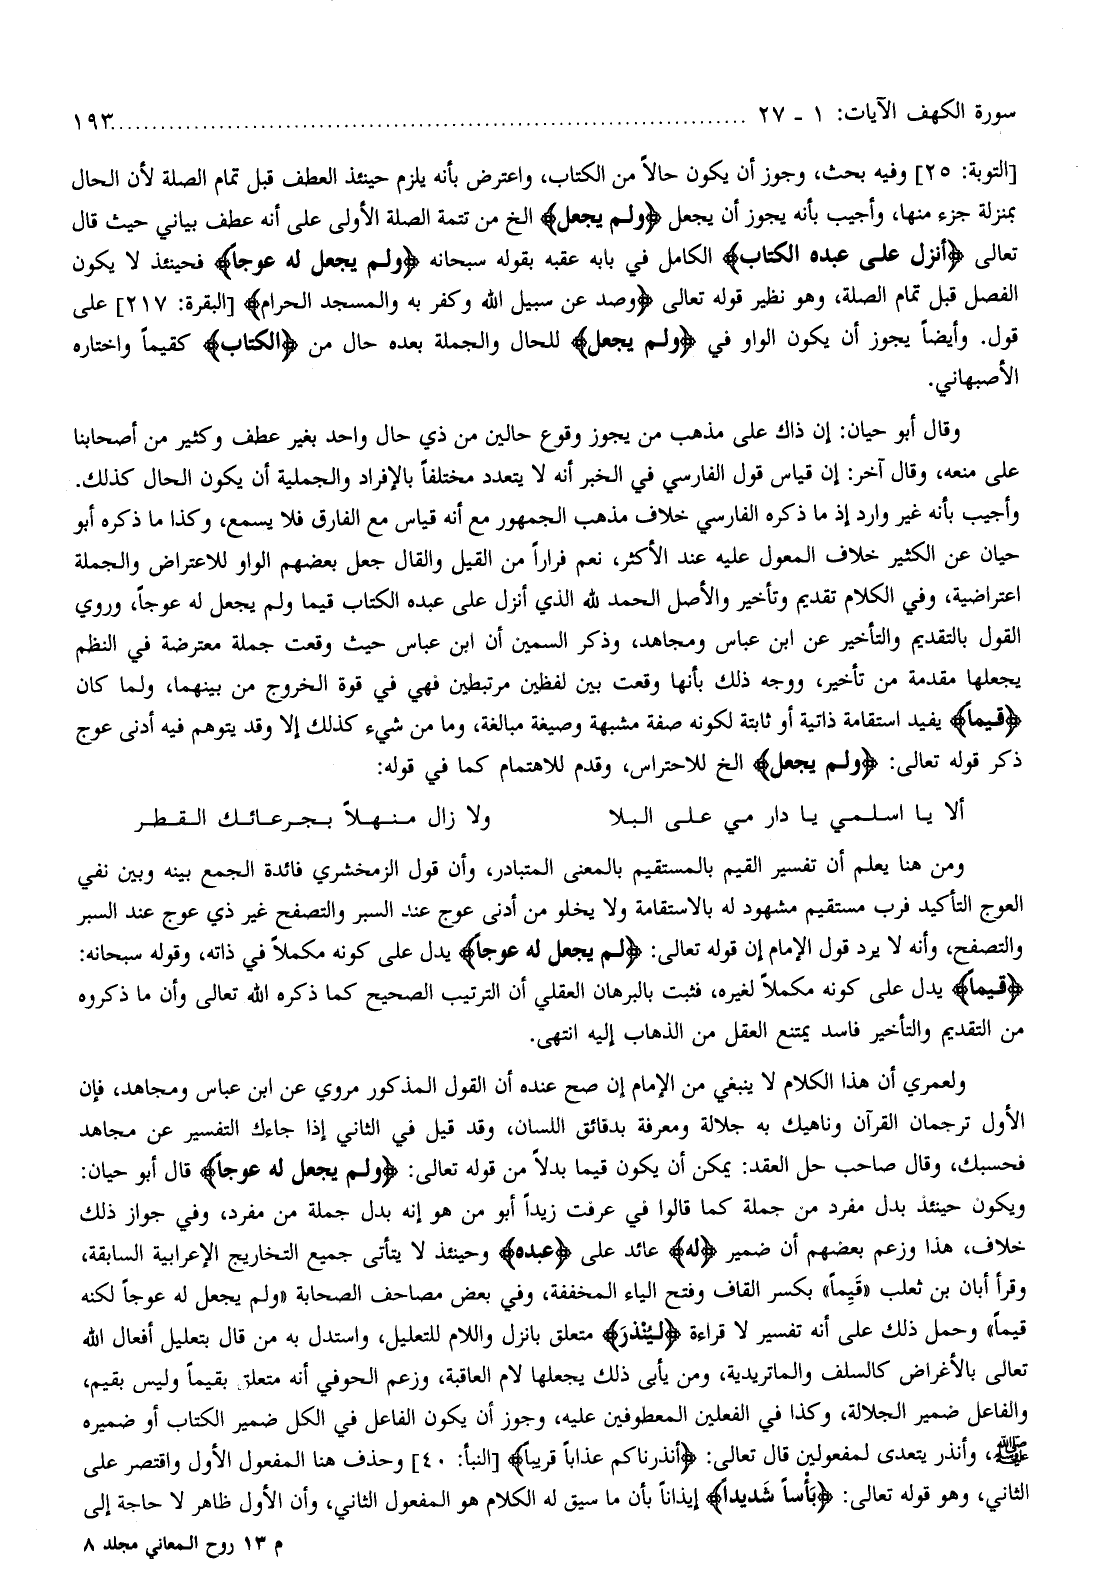 سورة الكهف الآيات: ١ ـ ٢٧ ............................................................ ١٩٣
[التوبة: ٢٥] وفيه بحث، وجوز أن يكون حالاً من الكتاب، واعترض بأنه يلزم حينئذ العطف قبل تمام الصلة لأن الحال
بمنزلة جزء منها، وأجيب بأنه يجوز أن يجعل ﴿ولم يجعل﴾ الخ من تتمة الصلة الأولى على أنه عطف بياني حيث قال
تعالى ﴿أنزل على عبده الكتاب﴾ الكامل في بابه عقبه بقوله سبحانه ﴿ولم يجعل له عوجاً﴾ فحينئذ لا يكون
الفصل قبل تمام الصلة، وهو نظير قوله تعالى ﴿وصد عن سبيل الله وكفر به والمسجد الحرام﴾ [البقرة: ٢١٧] على
قول. وأيضاً يجوز أن يكون الواو في ﴿ولم يجعل﴾ للحال والجملة بعده حال من ﴿الكتاب﴾ كقيماً واختاره
الأصبهاني.
وقال أبو حيان: إن ذاك على مذهب من يجوز وقوع حالين من ذي حال واحد بغير عطف وكثير من أصحابنا
على منعه، وقال آخر: إن قياس قول الفارسي في الخبر أنه لا يتعدد مختلفاً بالإفراد والجملية أن يكون الحال كذلك.
وأجيب بأنه غير وارد إذ ما ذكره الفارسي خلاف مذهب الجمهور مع أنه قياس مع الفارق فلا يسمع، وكذا ما ذكره أبو
حيان عن الكثير خلاف المعول عليه عند الأكثر، نعم فراراً من القيل والقال جعل بعضهم الواو للاعتراض والجملة
اعتراضية، وفي الكلام تقديم وتأخير والأصل الحمد لله الذي أنزل على عبده الكتاب قيما ولم يجعل له عوجاً، وروي
القول بالتقديم والتأخير عن ابن عباس ومجاهد، وذكر السمين أن ابن عباس حيث وقعت جملة معترضة في النظم
يجعلها مقدمة من تأخير، ووجه ذلك بأنها وقعت بين لفظين مرتبطين فهي في قوة الخروج من بينهما، ولما كان
﴿قيماً﴾ يفيد استقامة ذاتية أو ثابتة لكونه صفة مشبهة وصيغة مبالغة، وما من شيء كذلك إلا وقد يتوهم فيه أدنى عوج
ذكر قوله تعالى: ﴿ولم يجعل﴾ الخ للاحتراس، وقدم للاهتمام كما في قوله:
ألا يا اسلمي يا دار مي على البلا ولا زال منهلاً بجرعائك القطر
ومن هنا يعلم أن تفسير القيم بالمستقيم بالمعنى المتبادر، وأن قول الزمخشري فائدة الجمع بينه وبين نفي
العوج التأكيد فرب مستقيم مشهود له بالاستقامة ولا يخلو من أدنى عوج عند السبر والتصفح غير ذي عوج عند السبر
والتصفح، وأنه لا يرد قول الإمام إن قوله تعالى: ﴿لم يجعل له عوجاً﴾ يدل على كونه مكملاً في ذاته، وقوله سبحانه:
﴿قيماً﴾ يدل على كونه مكملاً لغيره، فثبت بالبرهان العقلي أن الترتيب الصحيح كما ذكره الله تعالى وأن ما ذكروه
من التقديم والتأخير فاسد يمتنع العقل من الذهاب إليه انتهى.
ولعمري أن هذا الكلام لا ينبغي من الإمام إن صح عنده أن القول المذكور مروي عن ابن عباس ومجاهد، فإن
الأول ترجمان القرآن وناهيك به جلالة ومعرفة بدقائق اللسان، وقد قيل في الثاني إذا جاءك التفسير عن مجاهد
فحسبك، وقال صاحب حل العقد: يمكن أن يكون قيما بدلاً من قوله تعالى: ﴿ولم يجعل له عوجاً﴾ قال أبو حيان:
ويكون حينئذ بدل مفرد من جملة كما قالوا في عرفت زيداً أبو من هو إنه بدل جملة من مفرد، وفي جواز ذلك
خلاف، هذا وزعم بعضهم أن ضمير ﴿له﴾ عائد على ﴿عبده﴾ وحينئذ لا يتأتى جميع التخاريج الإعرابية السابقة،
وقرأ أبان بن ثعلب «قَيِماً» بكسر القاف وفتح الياء المخففة، وفي بعض مصاحف الصحابة «ولم يجعل له عوجاً لكنه
قيماً» وحمل ذلك على أنه تفسير لا قراءة ﴿لِيُنْذرَ﴾ متعلق بانزل واللام للتعليل، واستدل به من قال بتعليل أفعال الله
تعالى بالأغراض كالسلف والماتريدية، ومن يأبى ذلك يجعلها لام العاقبة، وزعم الحوفي أنه متعلق بقيماً وليس بقيم،
والفاعل ضمير الجلالة، وكذا في الفعلين المعطوفين عليه، وجوز أن يكون الفاعل في الكل ضمير الكتاب أو ضميره
ﷺ، وأنذر يتعدى لمفعولين قال تعالى: ﴿أنذرناكم عذاباً قريباً﴾ [النبأ: ٤٠] وحذف هنا المفعول الأول واقتصر على
الثاني، وهو قوله تعالى: ﴿بَأْساً شَديداً﴾ إيذاناً بأن ما سيق له الكلام هو المفعول الثاني، وأن الأول ظاهر لا حاجة إلى
م ١٣ روح المعاني مجلد ٨